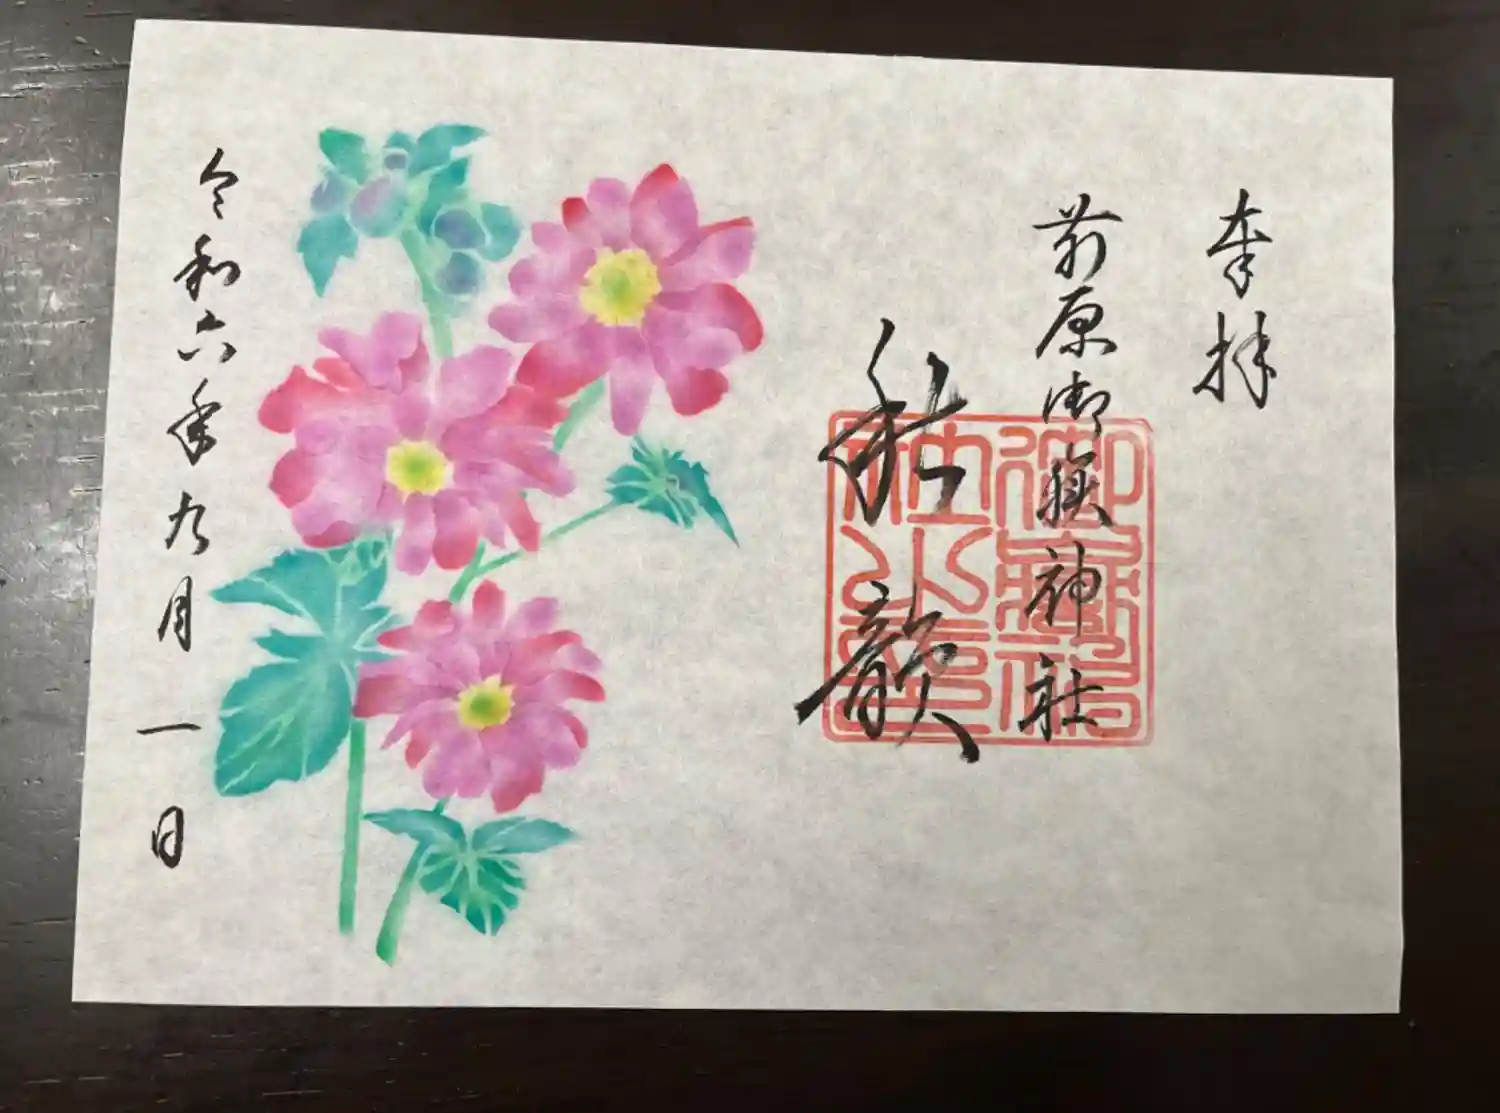 奉拝
前原御嶽神社
御嶽神
社之印
令和六年九月一日